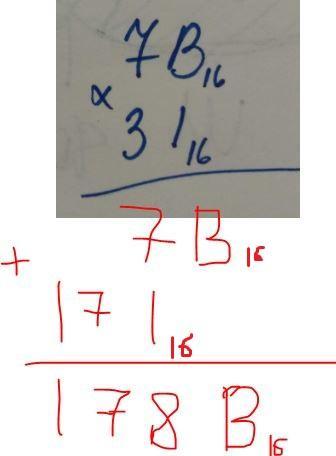 7B₁₆
×
31₁₆
7B₁₆
+
171₁₆
178B₁₆